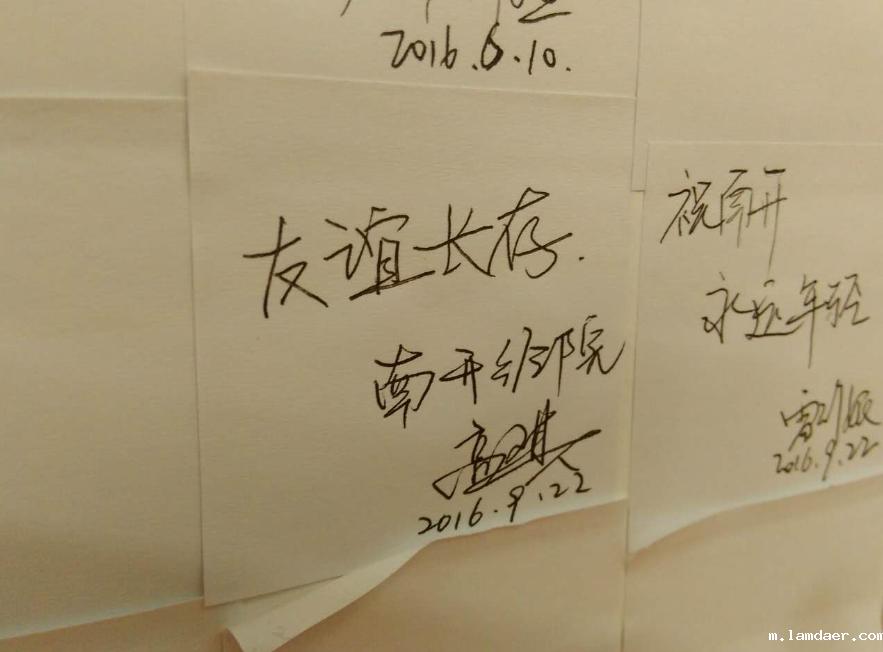 2016.6.10.
友谊长存.
南开经院
2016.9.22
祝南开
永远年轻
2016.9.22
m.lamdaer.com